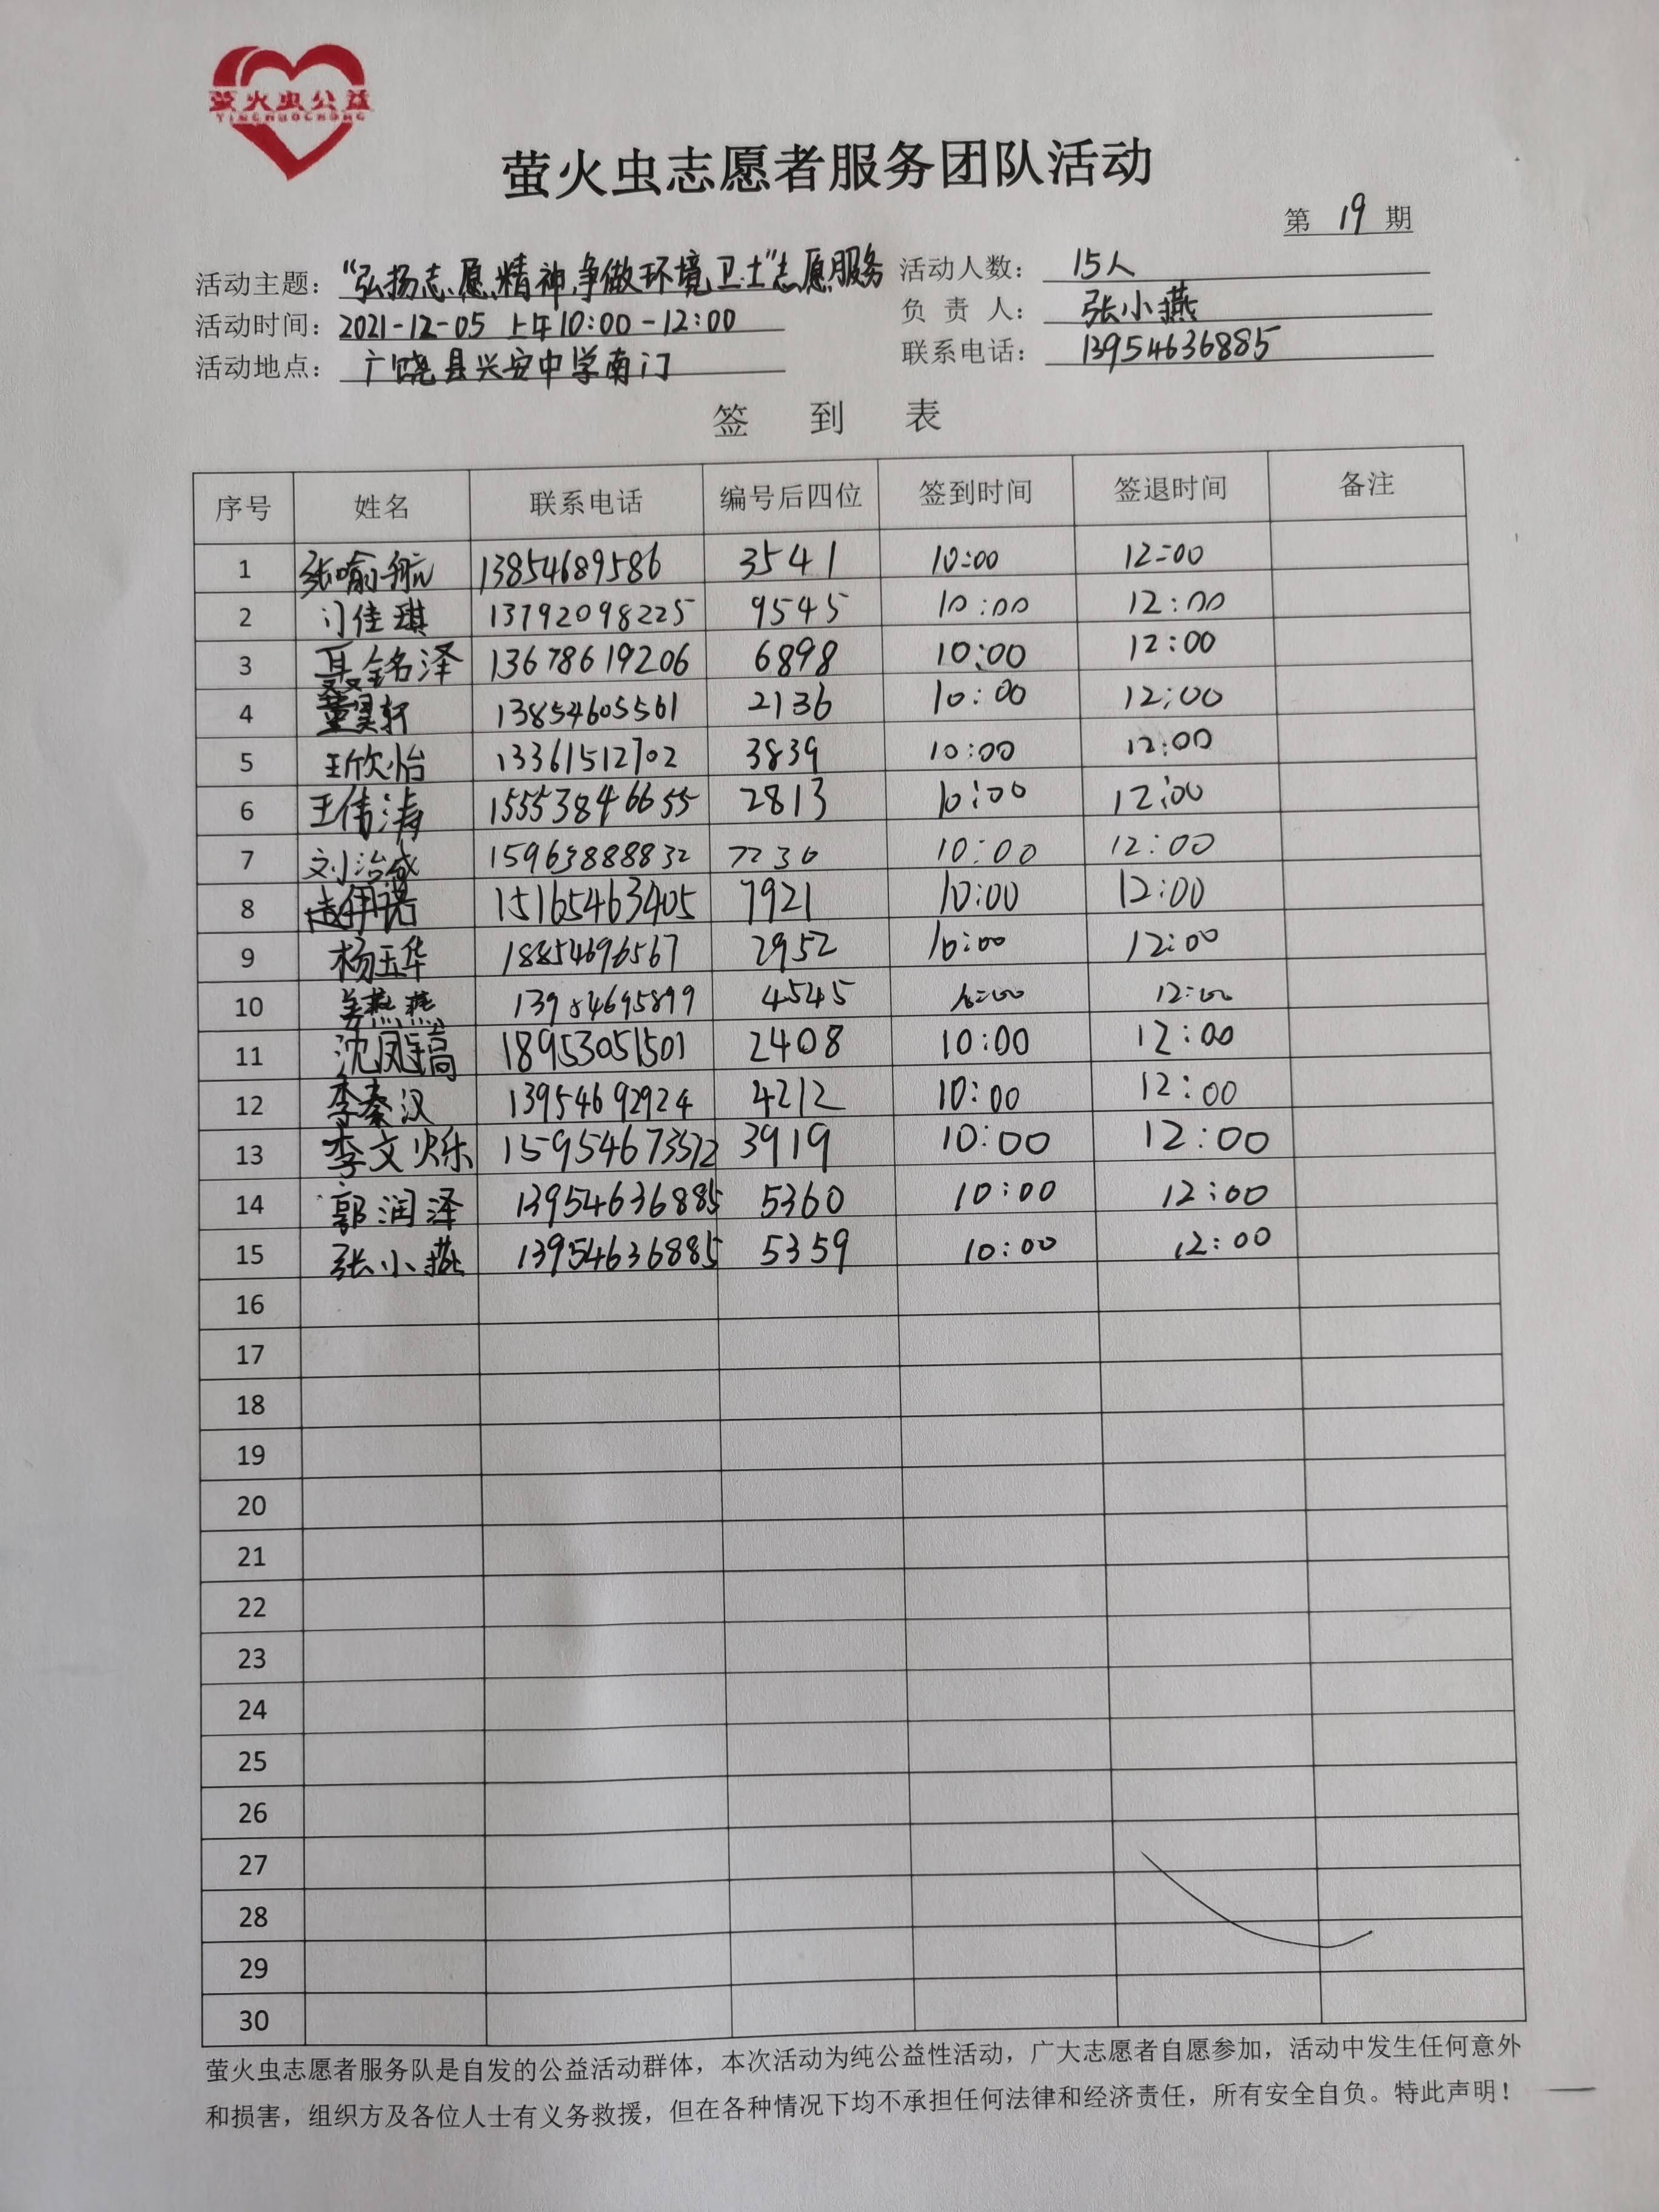 萤火虫公益
YINGHUOCHONG
萤火虫志愿者服务团队活动
第 19 期
活动主题：“弘扬志愿精神,争做环境卫士”志愿服务 活动人数： 15人
活动时间：2021-12-05 上午10:00-12:00 负 责 人： 张小燕
活动地点： 广饶县兴安中学南门 联系电话： 13954636885
签 到 表
序号 姓名 联系电话 编号后四位 签到时间 签退时间 备注
1 张喻航 13854689586 3541 10:00 12:00
2 门佳琪 13792098225 9545 10:00 12:00
3 聂铭泽 13678619206 6898 10:00 12:00
4 董昊轩 13854605561 2136 10:00 12:00
5 王欣怡 13361512702 3839 10:00 12:00
6 王伟涛 15553846655 2813 10:00 12:00
7 刘治成 15963888832 7236 10:00 12:00
8 赵伊诺 15165463405 7921 10:00 12:00
9 杨玉华 18854696567 2952 10:00 12:00
10 姜燕燕 4545 10:00 12:00
11 18953051501 2408 10:00 12:00
12 李秦汉 13954692924 4212 10:00 12:00
13 李文烁 3919 10:00 12:00
14 郭润泽 13954636885 5360 10:00 12:00
15 张小燕 13954636885 5359 10:00 12:00
16
17
18
19
20
21
22
23
24
25
26
27
28
29
30
萤火虫志愿者服务队是自发的公益活动群体，本次活动为纯公益性活动，广大志愿者自愿参加，活动中发生任何意外
和损害，组织方及各位人士有义务救援，但在各种情况下均不承担任何法律和经济责任，所有安全自负。特此声明！